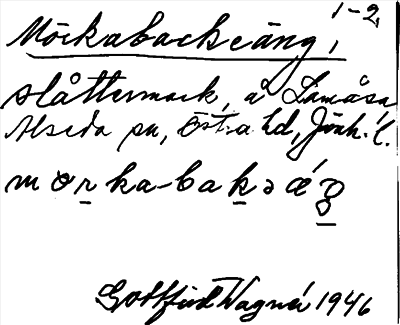 1-2
Möckabackeäng,
slåttermark, å Lamåsa
Alseda sn, Östra hd, Jönk. l.
morka-bakəǽ
Gottfrid Wagnér 1946